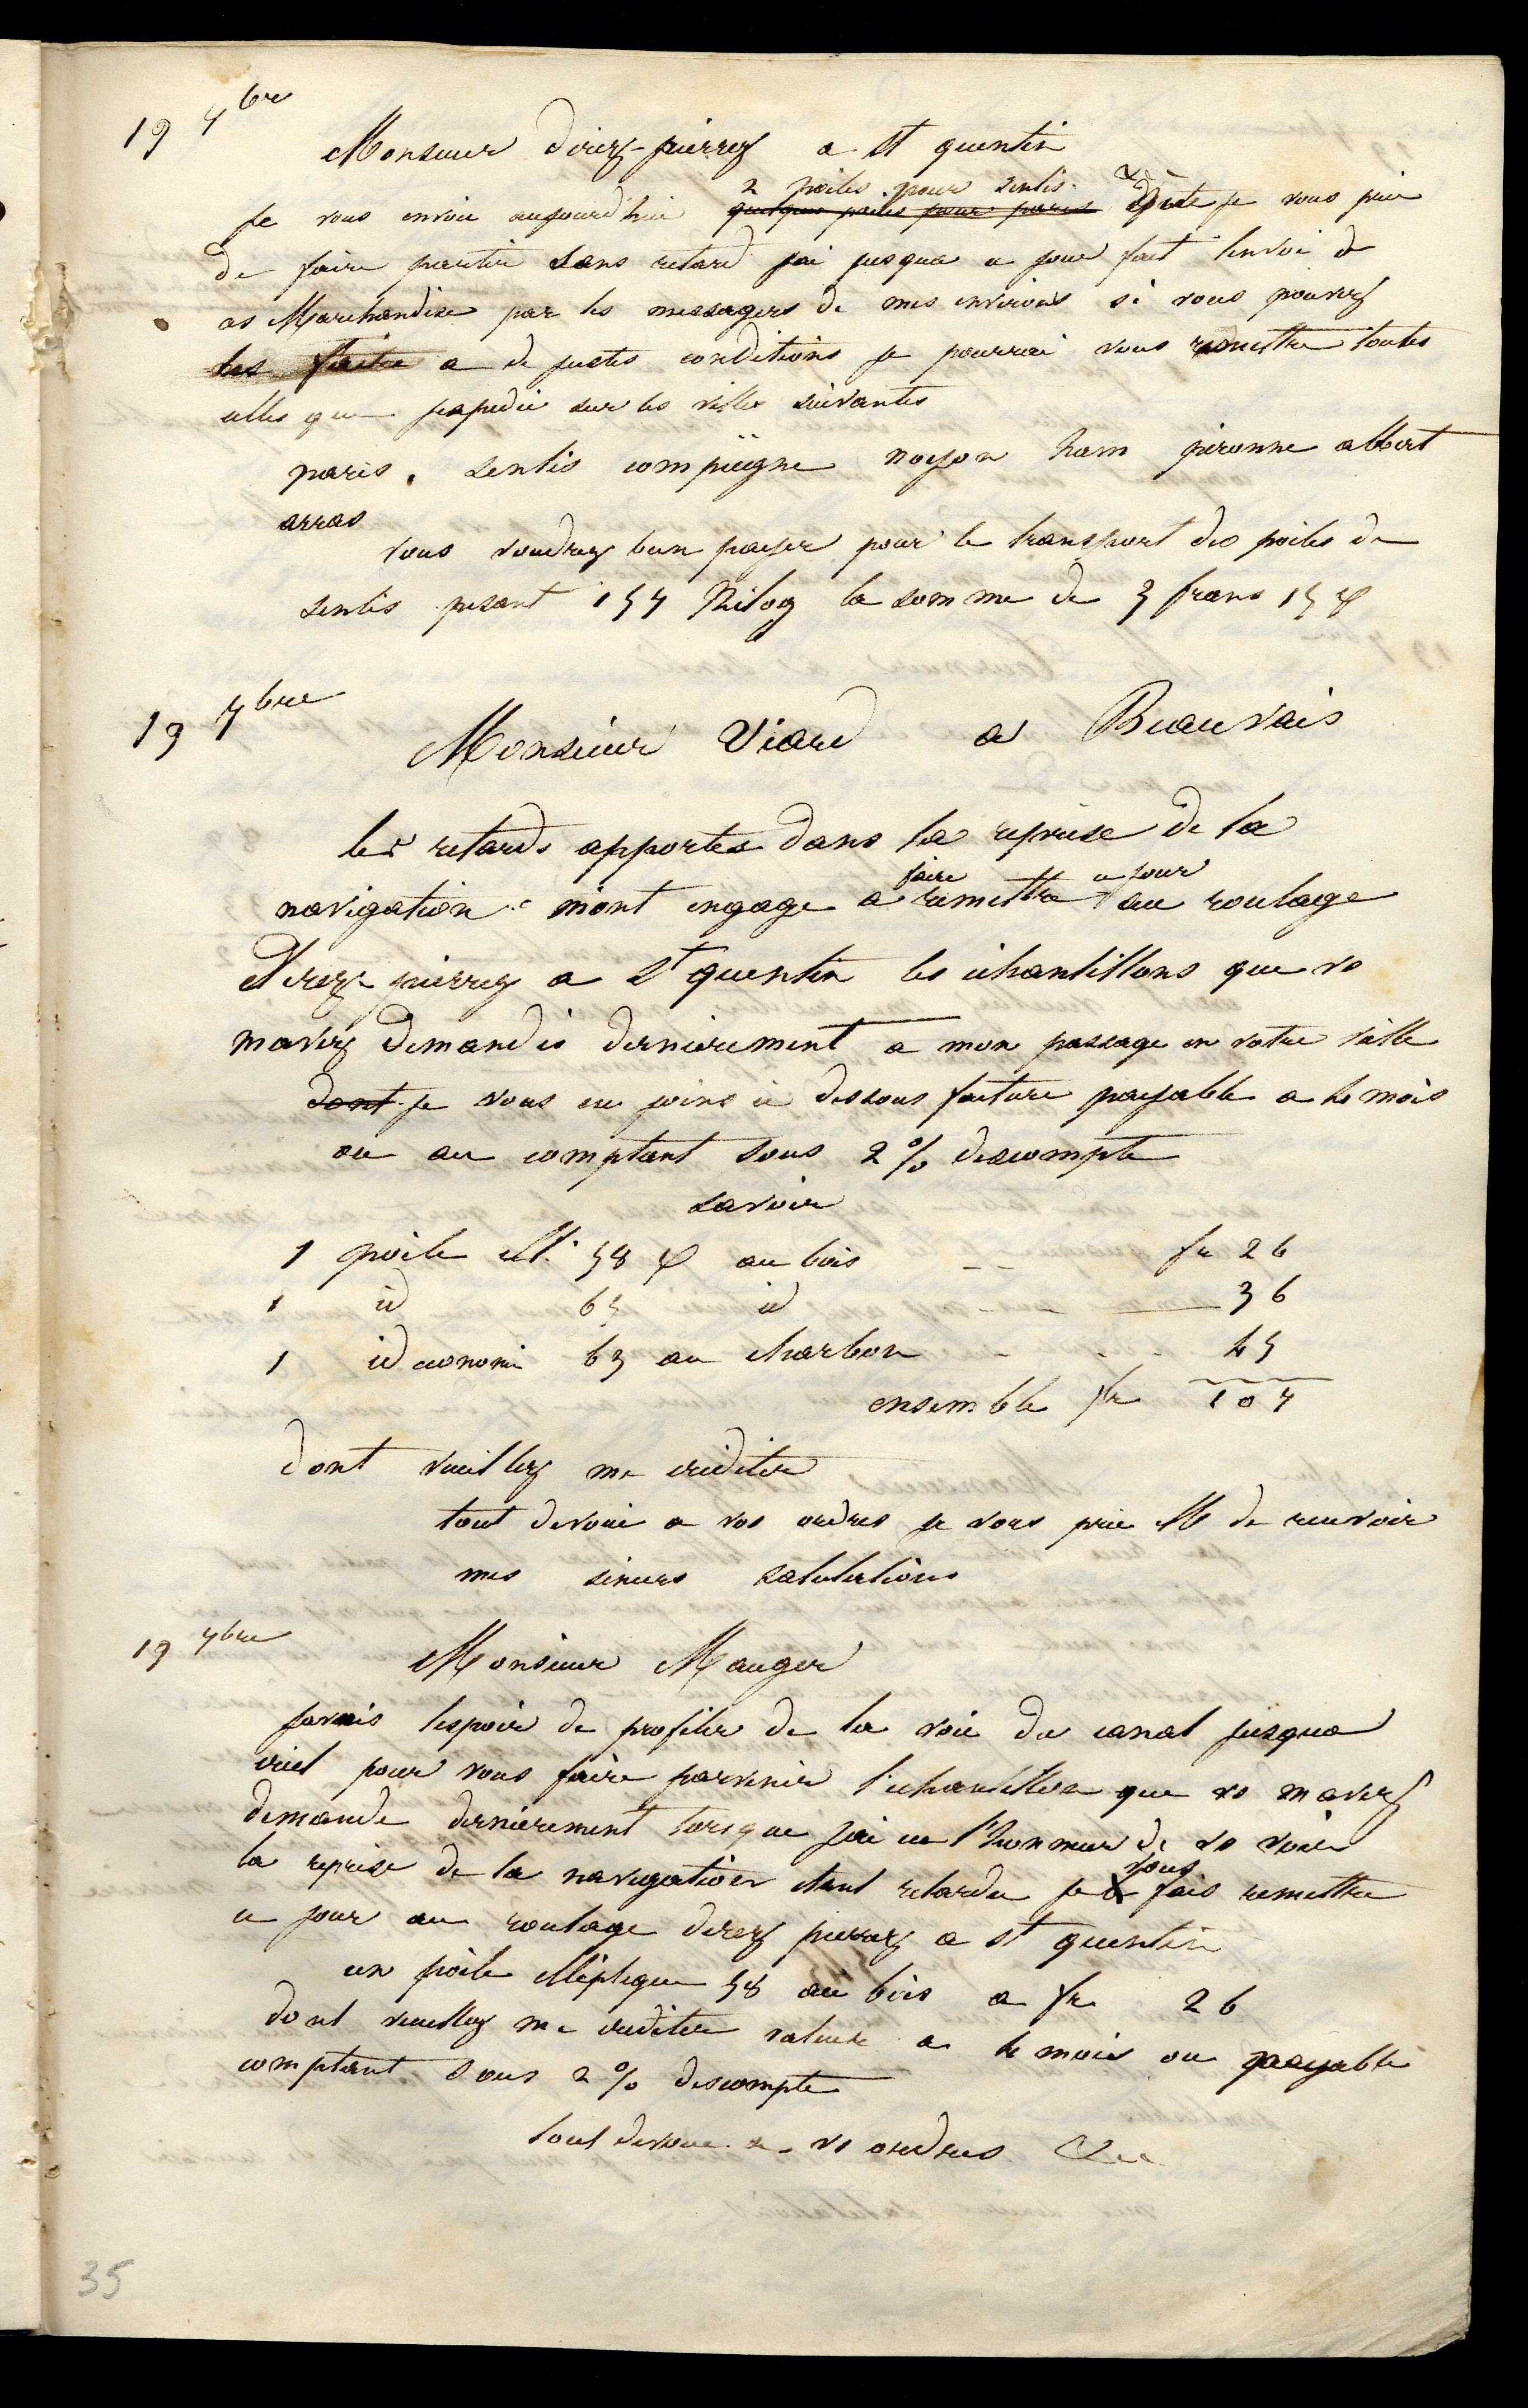 19 7bre
Monsieur direz-pierrez a St quentin
2 poiles pour Senlis
Je vous envoie aujourd'hui quelques poiles pour paris je vous prie
de faire partir sans retard jai jusqua ce jour fait lenvoi de
ces Marchandise par les messagers de mes environs si vous pouvez
les faire a de justes conditions je pourrai vous remettre toutes
celles que jexpedie sur les villes suivantes
paris. Senlis compiègne noyon ham péronne albert
arras
vous voudrez bien payer pour le transport des poiles de
senlis pesant 157 Kilog la somme de 3 francs 15 c
19 7bre
Monsieur Viard a Beauvais
les retards apportes dans la reprise de la
faire ce jour
navigation mont engage a remettre au roulage
direz-pierrez a St quentin les échantillons que vs
mavez demandés dernièrement a mon passage en votre ville
dont je vous en joins ci dessous facture payable a 4 mois
ou au comptant sous 2 % descompte
savoir
1 poile ell. 58 c au bois fr 26
1 id 65 id 36
1 id economi 63 au charbon 45
ensemble fr 107
dont veuillez me créditer
tout dévoué a vos ordres je vous prie M de recevoir
mes sinceres salutations
19 7bre
Monsieur Mauger
javais lespoir de profiter de la voie du canal jusqua
creil pour vous faire parvenir l'echantillon que vs mavez
demande dernièrement lorsque jai eu l'honneur de vs voir
vous
la reprise de la navigation etant retardee je fais remettre
ce jour au roulage direz pierrez a St quentin
un poile elliptique 58 au bois a fr 26
dont veuillez me créditer valeur a 4 mois ou payable
comptant sous 2 % descompte
tout dévoué a vs ordres
35